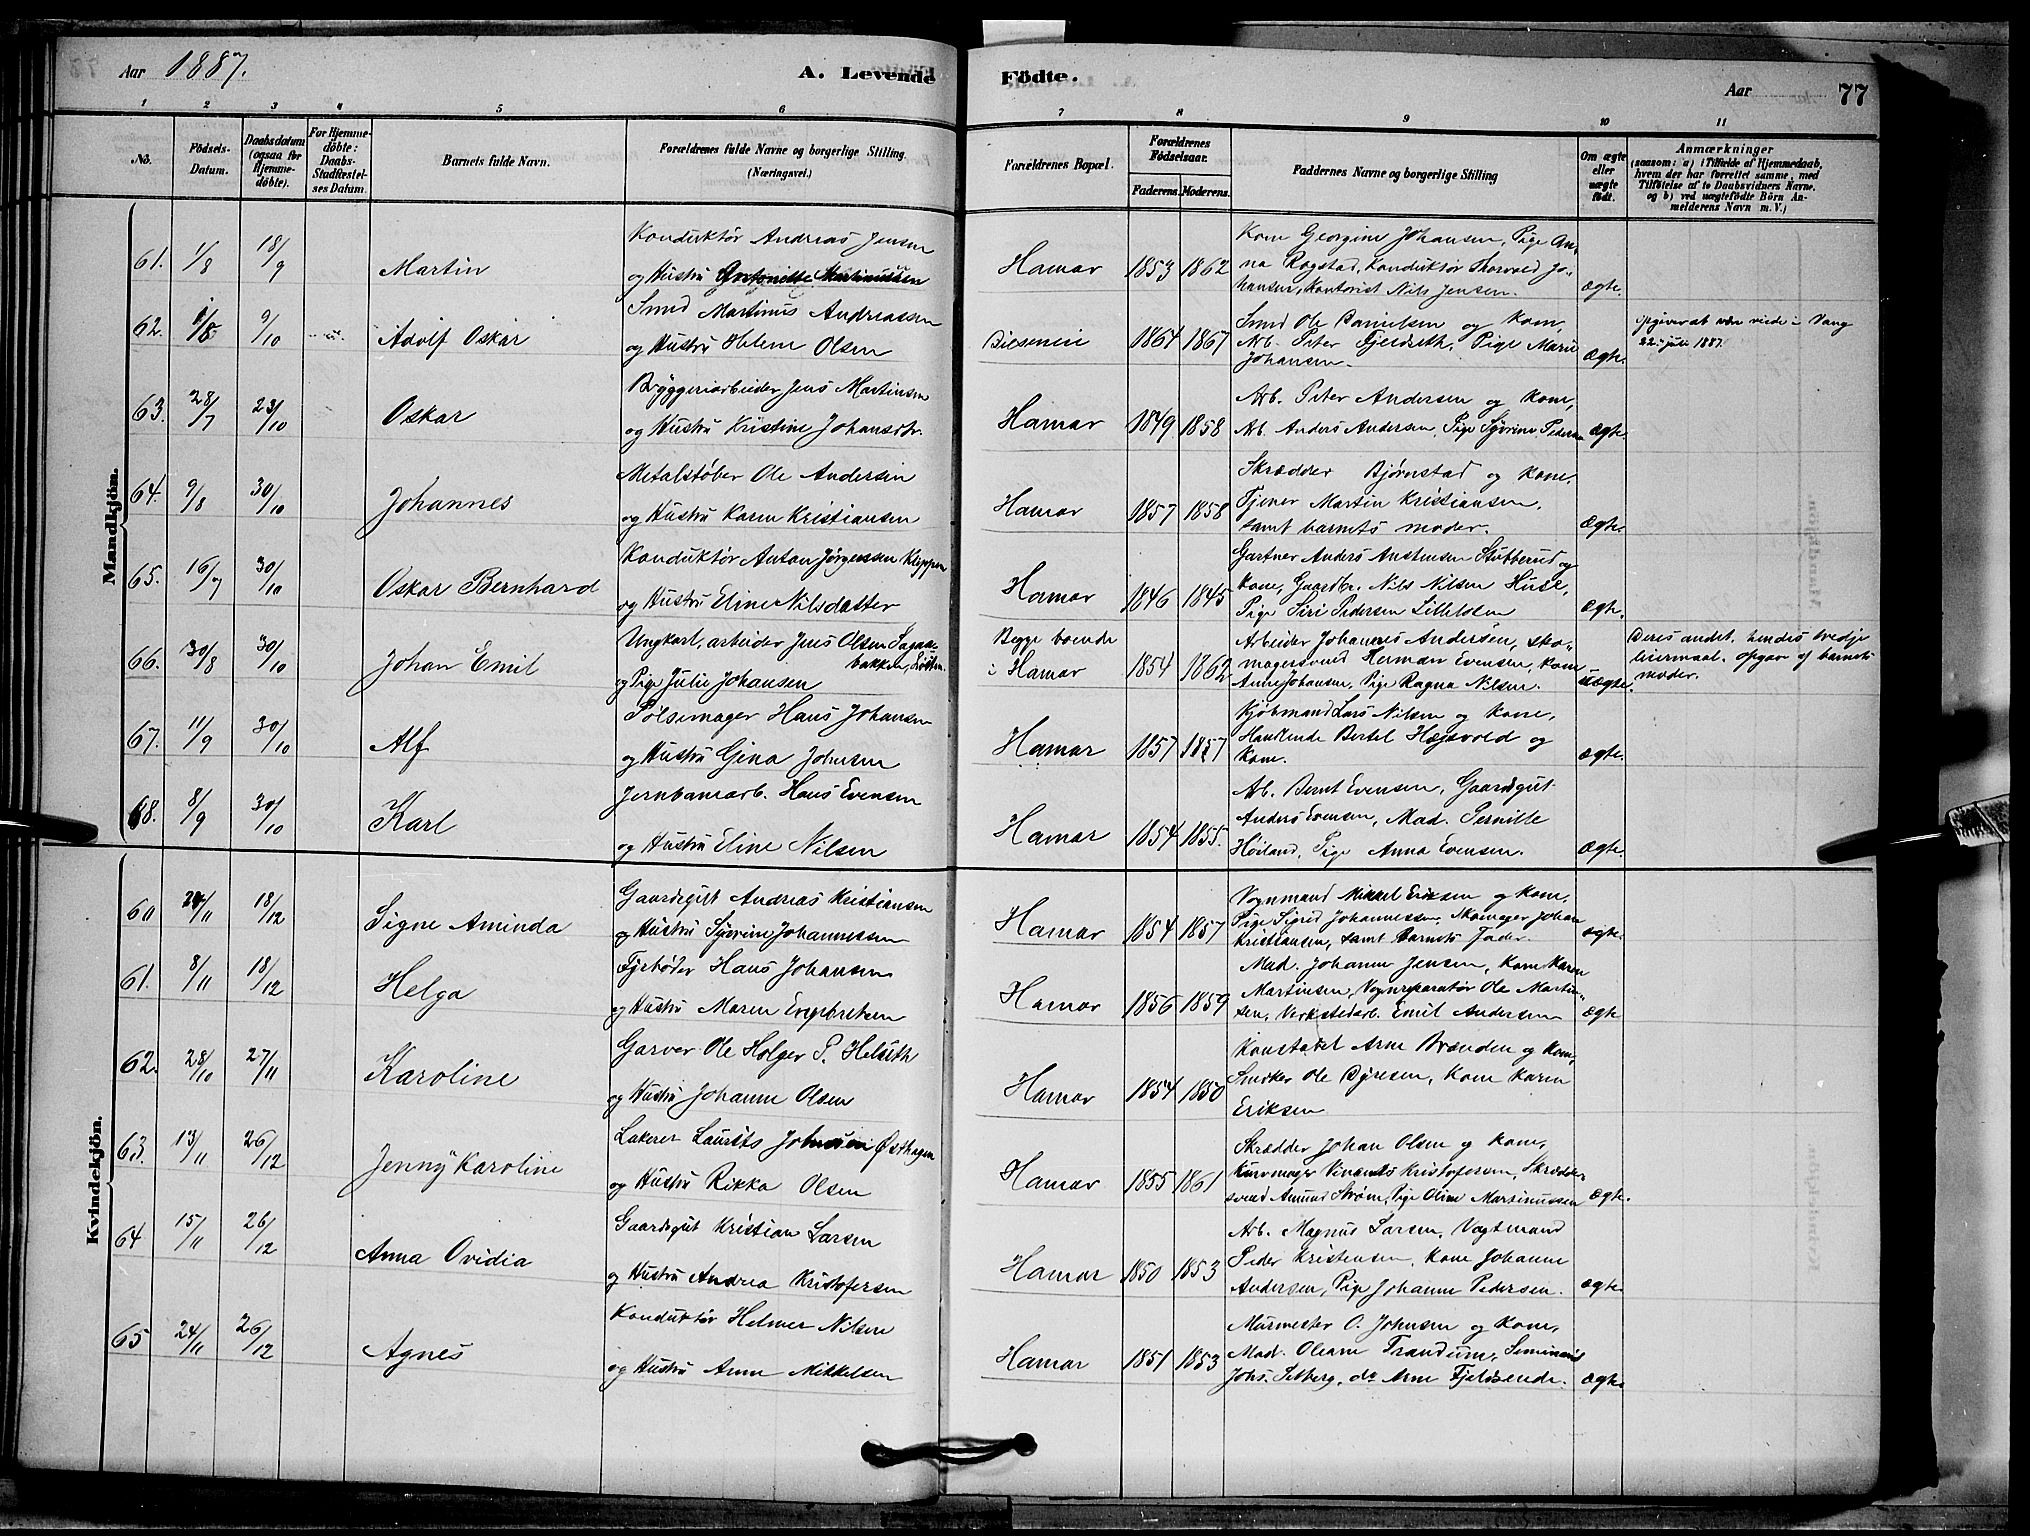 Aar 1887. A. Levende Födte. Aar 77
1 2 3 4 5 6 7 8 9 10 11
No. Födsels-Datum. Daabsdatum (ogsaa for Hjemme-döbte). For Hjemme-döbte: Daabs-Stadfæstel-ses Datum. Barnets fulde Navn. Forældrenes fulde Navne og borgerlige Stilling. (Næringsvei.) Forældrenes Bopæl. Forældrenes Födselsaar. Faderens. Moderens. Faddernes Navne og borgerlige Stilling Om ægte eller uægte födt. Anmærkninger (saasom: a) i Tilfælde af Hjemmedaab, hvem der har forrettet samme, med Tilföielse af to Daabsvidners Navne, og b) ved uægtefödte Börn An-melderens Navn m. V.)
Mandkjön.
61. 1/8 18/9 Martin Konduktør Andreas Jensen
og Hustru Antonette Martinussen Hamar 1853 1862 Kone Georgine Johansen, Pige An-
na Rogstad, Konduktør Thorvald Jo-
hansen, Kontorist Nils Jensen. ægte.
62. 9/10 Adolf Oskar Smed Martinus Andreassen
og Hustru Helene Olsen 1864 1867 Smed Ole Danielsen og Kone,
Arb. Peter Fjeldseth, Pige Marie
Johansen. ægte. opgiver at være viede i Vang
22 juli 1887.
63. 28/7 23/10 Oskar Bryggeriarbeider Jens Martinsen
og Hustru Kristine Johansdtr. Hamar 1849 1858 Arb. Peter Andersen og Kone,
Arb. Anders Andersen, Pige Syverine Pedersen ægte.
64. 9/8 30/10 Johannes Metalstøber Ole Andersen
og Hustru Karen Kristiansen Hamar 1857 1858 Skrædder Bjørnstad og Kone,
Tjener Martin Kristiansen,
samt barnets moder. ægte.
65. 16/7 30/10 Oskar Bernhard Konduktør Anton Jørgensen Kleppen
og Hustru Eline Nilsdatter Hamar 1846 1845 Gartner Anders Austensen Stubberud og
Kone, Gaardbr. Nils Nilsen Huse,
Pige Siri Pedersen ægte.
66. 30/8 30/10 Johan Emil Ungkarl, arbeider Jens Olsen
bakken, Løiten
og Pige Julie Johansen Begge boende
i Hamar 1854 1862 Arbeider Johannes Andersen, sko-
magersvend Herman Evensen, Kone
Anne Johansen, Pige Ragna Nilsen. uægte. Deres andet, hendes tredje
leiermaal. opgav af barnets
moder.
67. 11/9 30/10 Alf Pølsemager Hans Johansen
og Hustru Gina Johnsen Hamar 1857 1857 Kjøbmand Lars Nilsen og Kone,
Handlende Bertel Hægsvold og
Kone. ægte.
68. 8/9 30/10 Karl Jernbanearb. Hans Evensen
og Hustru Eline Nilsen Hamar 1854 1855. Arb. Bernt Evensen, Gaardsgut
Anders Evensen, Mad. Pernille
Høiland, Pige Anna Evensen. ægte.
Kvindekjön.
60 24/11 18/12 Signe Aminda Gaardsgut Andreas Kristiansen
og Hustru Syverine Johannessen Hamar 1854 1857 Vognmand Mikkel Eriksen og Kone,
Pige Sigrid Johannessen, Skomager Johan
Kristiansen, samt Barnets Fader. ægte.
61. 8/11 18/12 Helga Fyrbøder Hans Johansen
og Hustru Maren Engebretsen Hamar 1856 1859 Mad. Johanne Jensen, Kone Karen
Martinsen, Vognreparatør Ole Martin-
sen, Verkstedarb. Emil Andersen ægte
62. 28/10 27/11 Karoline Garver Ole Holger P. Helseth
og Hustru Johanne Olsen Hamar 1854 1850 Konstabel Arne Brænden og Kone,
Snedker Ole Dyresen, Kone Karen
Eriksen
63. 13/11 26/12 Jenny Karoline Lakerer Laurits Johnsen Østhagen
og Hustru Rikka Olsen Hamar 1855 1861 Skrædder Johan Olsen og Kone,
Kurvmager Kristofersen, Skrædder-
svend Amund Strøm, Pige Oline Martinussen ægte.
64 15/11 26/12 Anna Ovidia Gaardsgut Kristian Larsen
og Hustru Andrea Kristofersen Hamar 1850 1853 Arb. Magnus Larsen, Vogtmand
Peder Kristensen, Kone Johanne
Andersen, Pige Johanne Pedersen. ægte.
65 24/11 26/12 Agnes Konduktør Helmer Nilsen
og Hustru Anne Mikkelsen Hamar 1851 1853 Murmester O. Johnsen og Kone,
Mad. Oleane Trandum, Seminarist
Johs. Setberg, do Arne Fjeldsende. ægte.